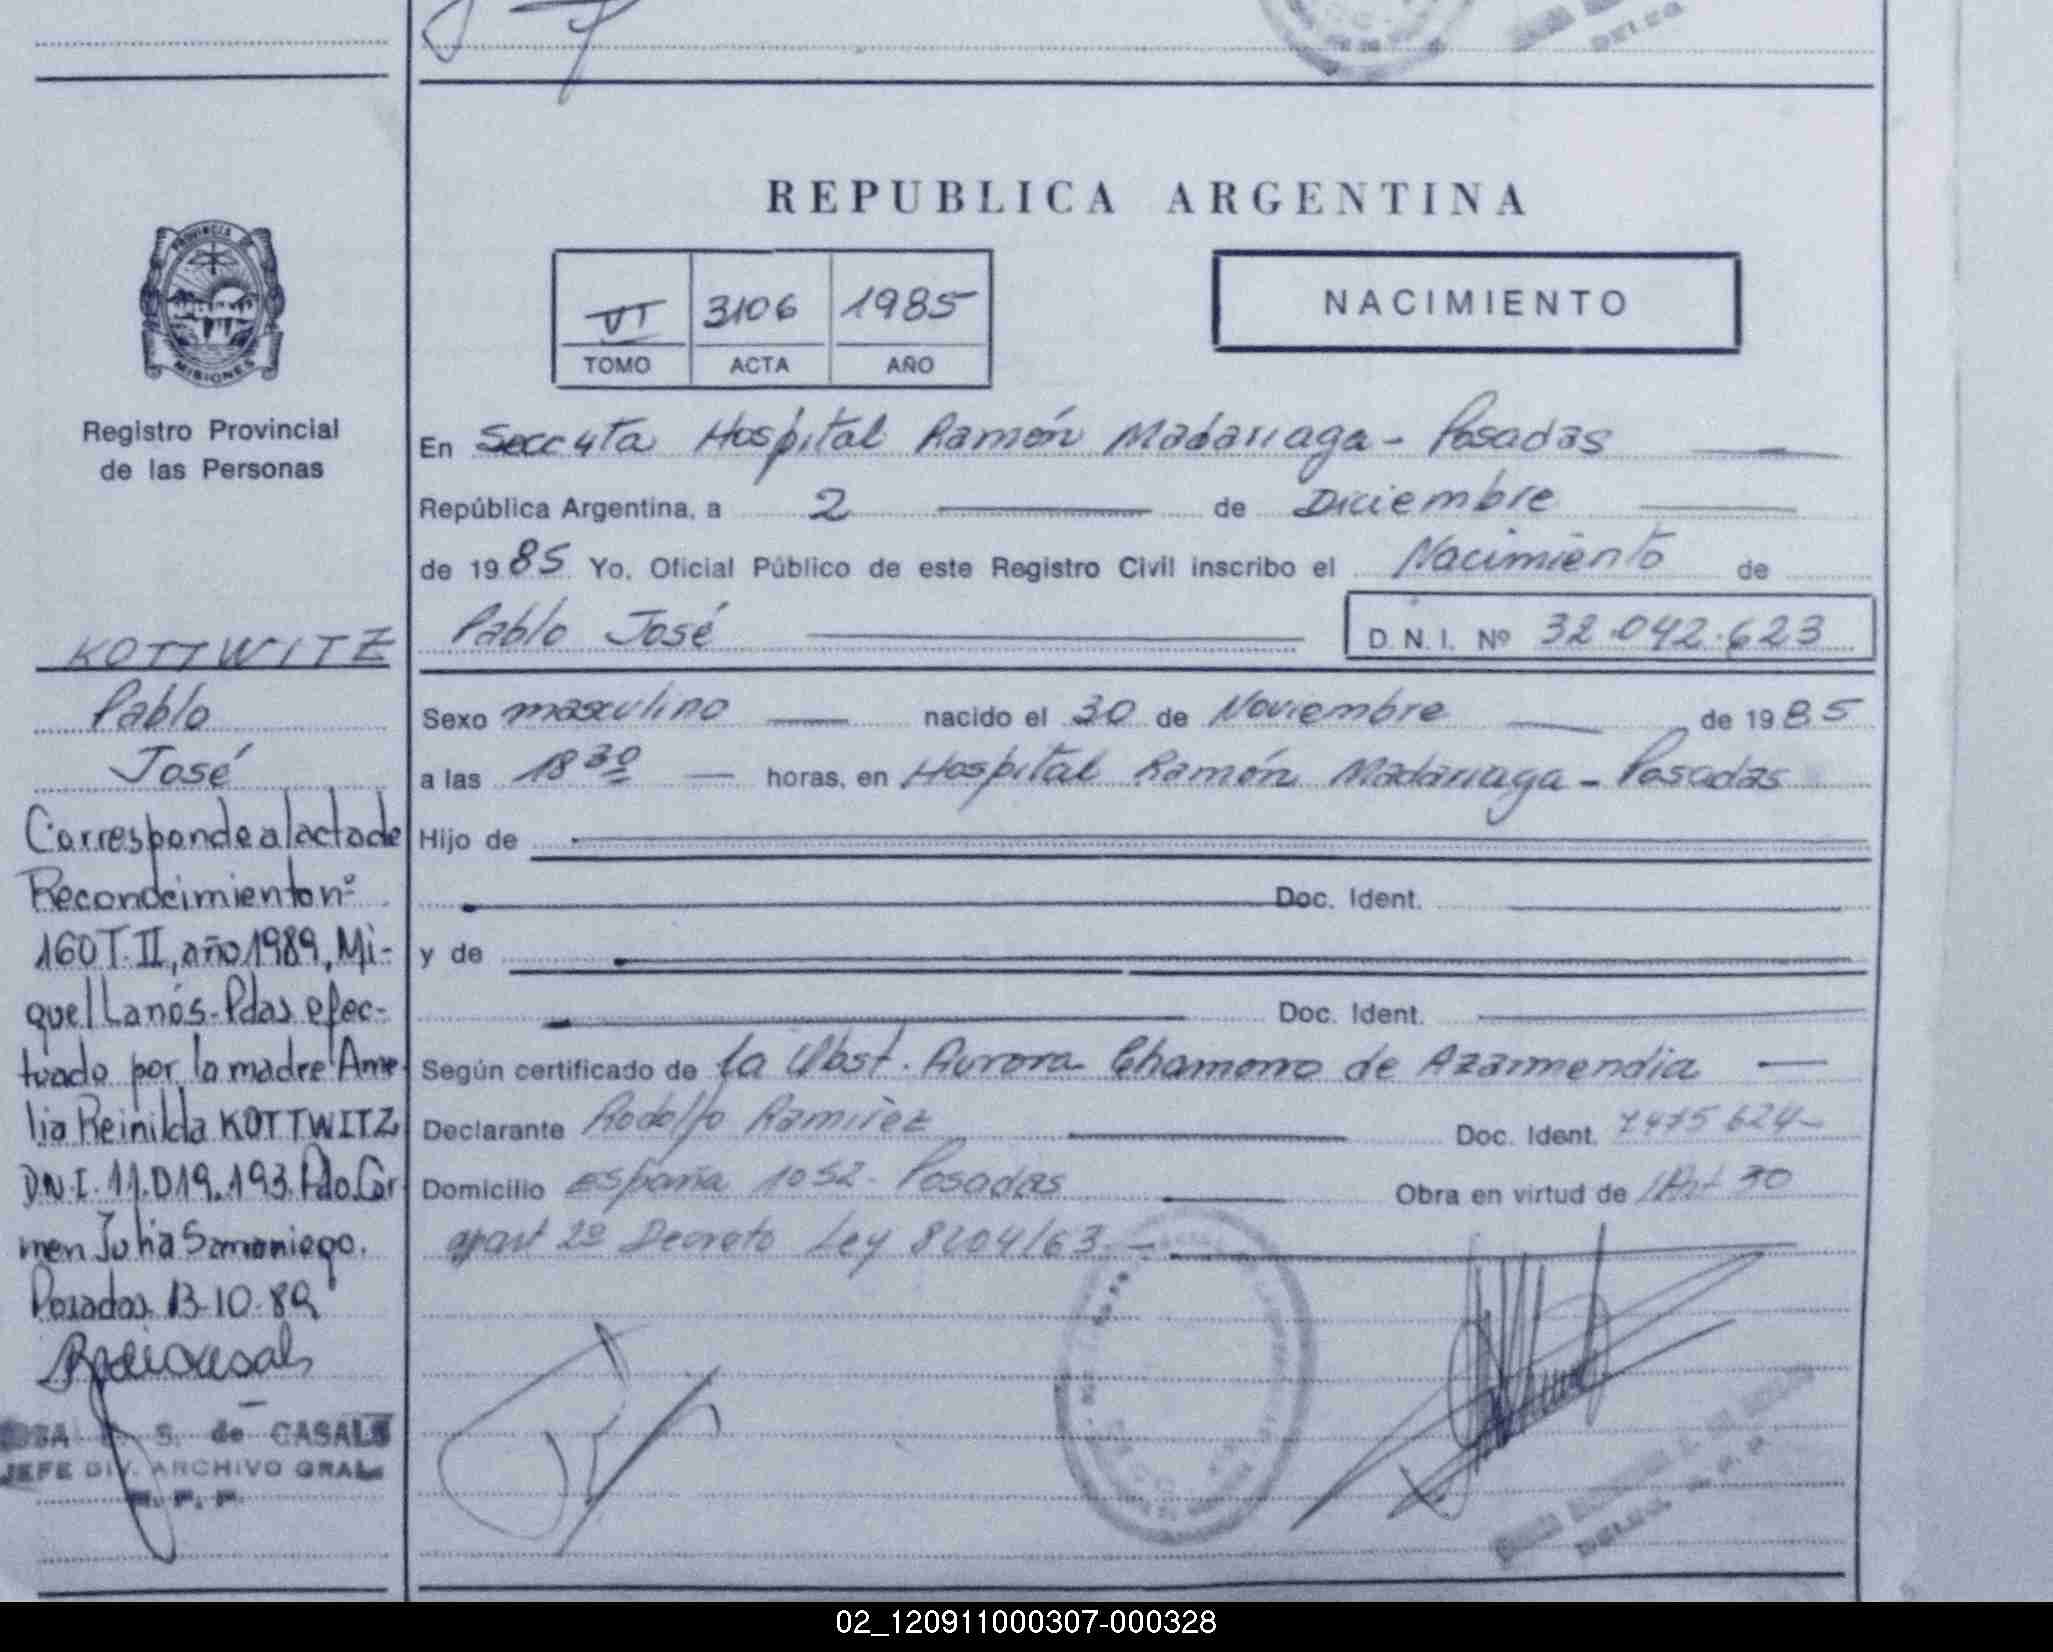 REPUBLICA ARGENTINA
PROVINCIA DE
MISIONES
Registro Provincial
de las Personas
VI 3106 1985
TOMO ACTA AÑO
NACIMIENTO
En Secc 4ta Hospital Ramón Madariaga - Posadas
República Argentina, a 2 de Diciembre
de 1985 Yo, Oficial Público de este Registro Civil inscribo el Nacimiento de
Pablo José D.N.I. Nº 32.042.623
Sexo masculino nacido el 30 de Noviembre de 1985
a las 18 30 horas, en Hospital Ramón Madariaga - Posadas
Hijo de
Doc. Ident.
y de
Doc. Ident.
Según certificado de la Obst. Aurora Chamorro de Azarmendia
Declarante Rodolfo Ramirez Doc. Ident. 7475624-
Domicilio España 1052 - Posadas Obra en virtud de Art 30
apart 2º Decreto Ley 8204/63
KOTTWITZ
Pablo
José
Corresponde al acta de
Reconocimiento nº
160 T. II, año 1989, Mi-
guel Lanós - Pdas efec-
tuado por la madre Ame
lia Reinilda KOTTWITZ
D.N.I. 11.019.193. Fdo. Car
men Julia Samaniego.
Posadas 13-10-89
S. de CASALS
JEFE DIV. ARCHIVO GRAL.
R. P. P.
02_120911000307-000328